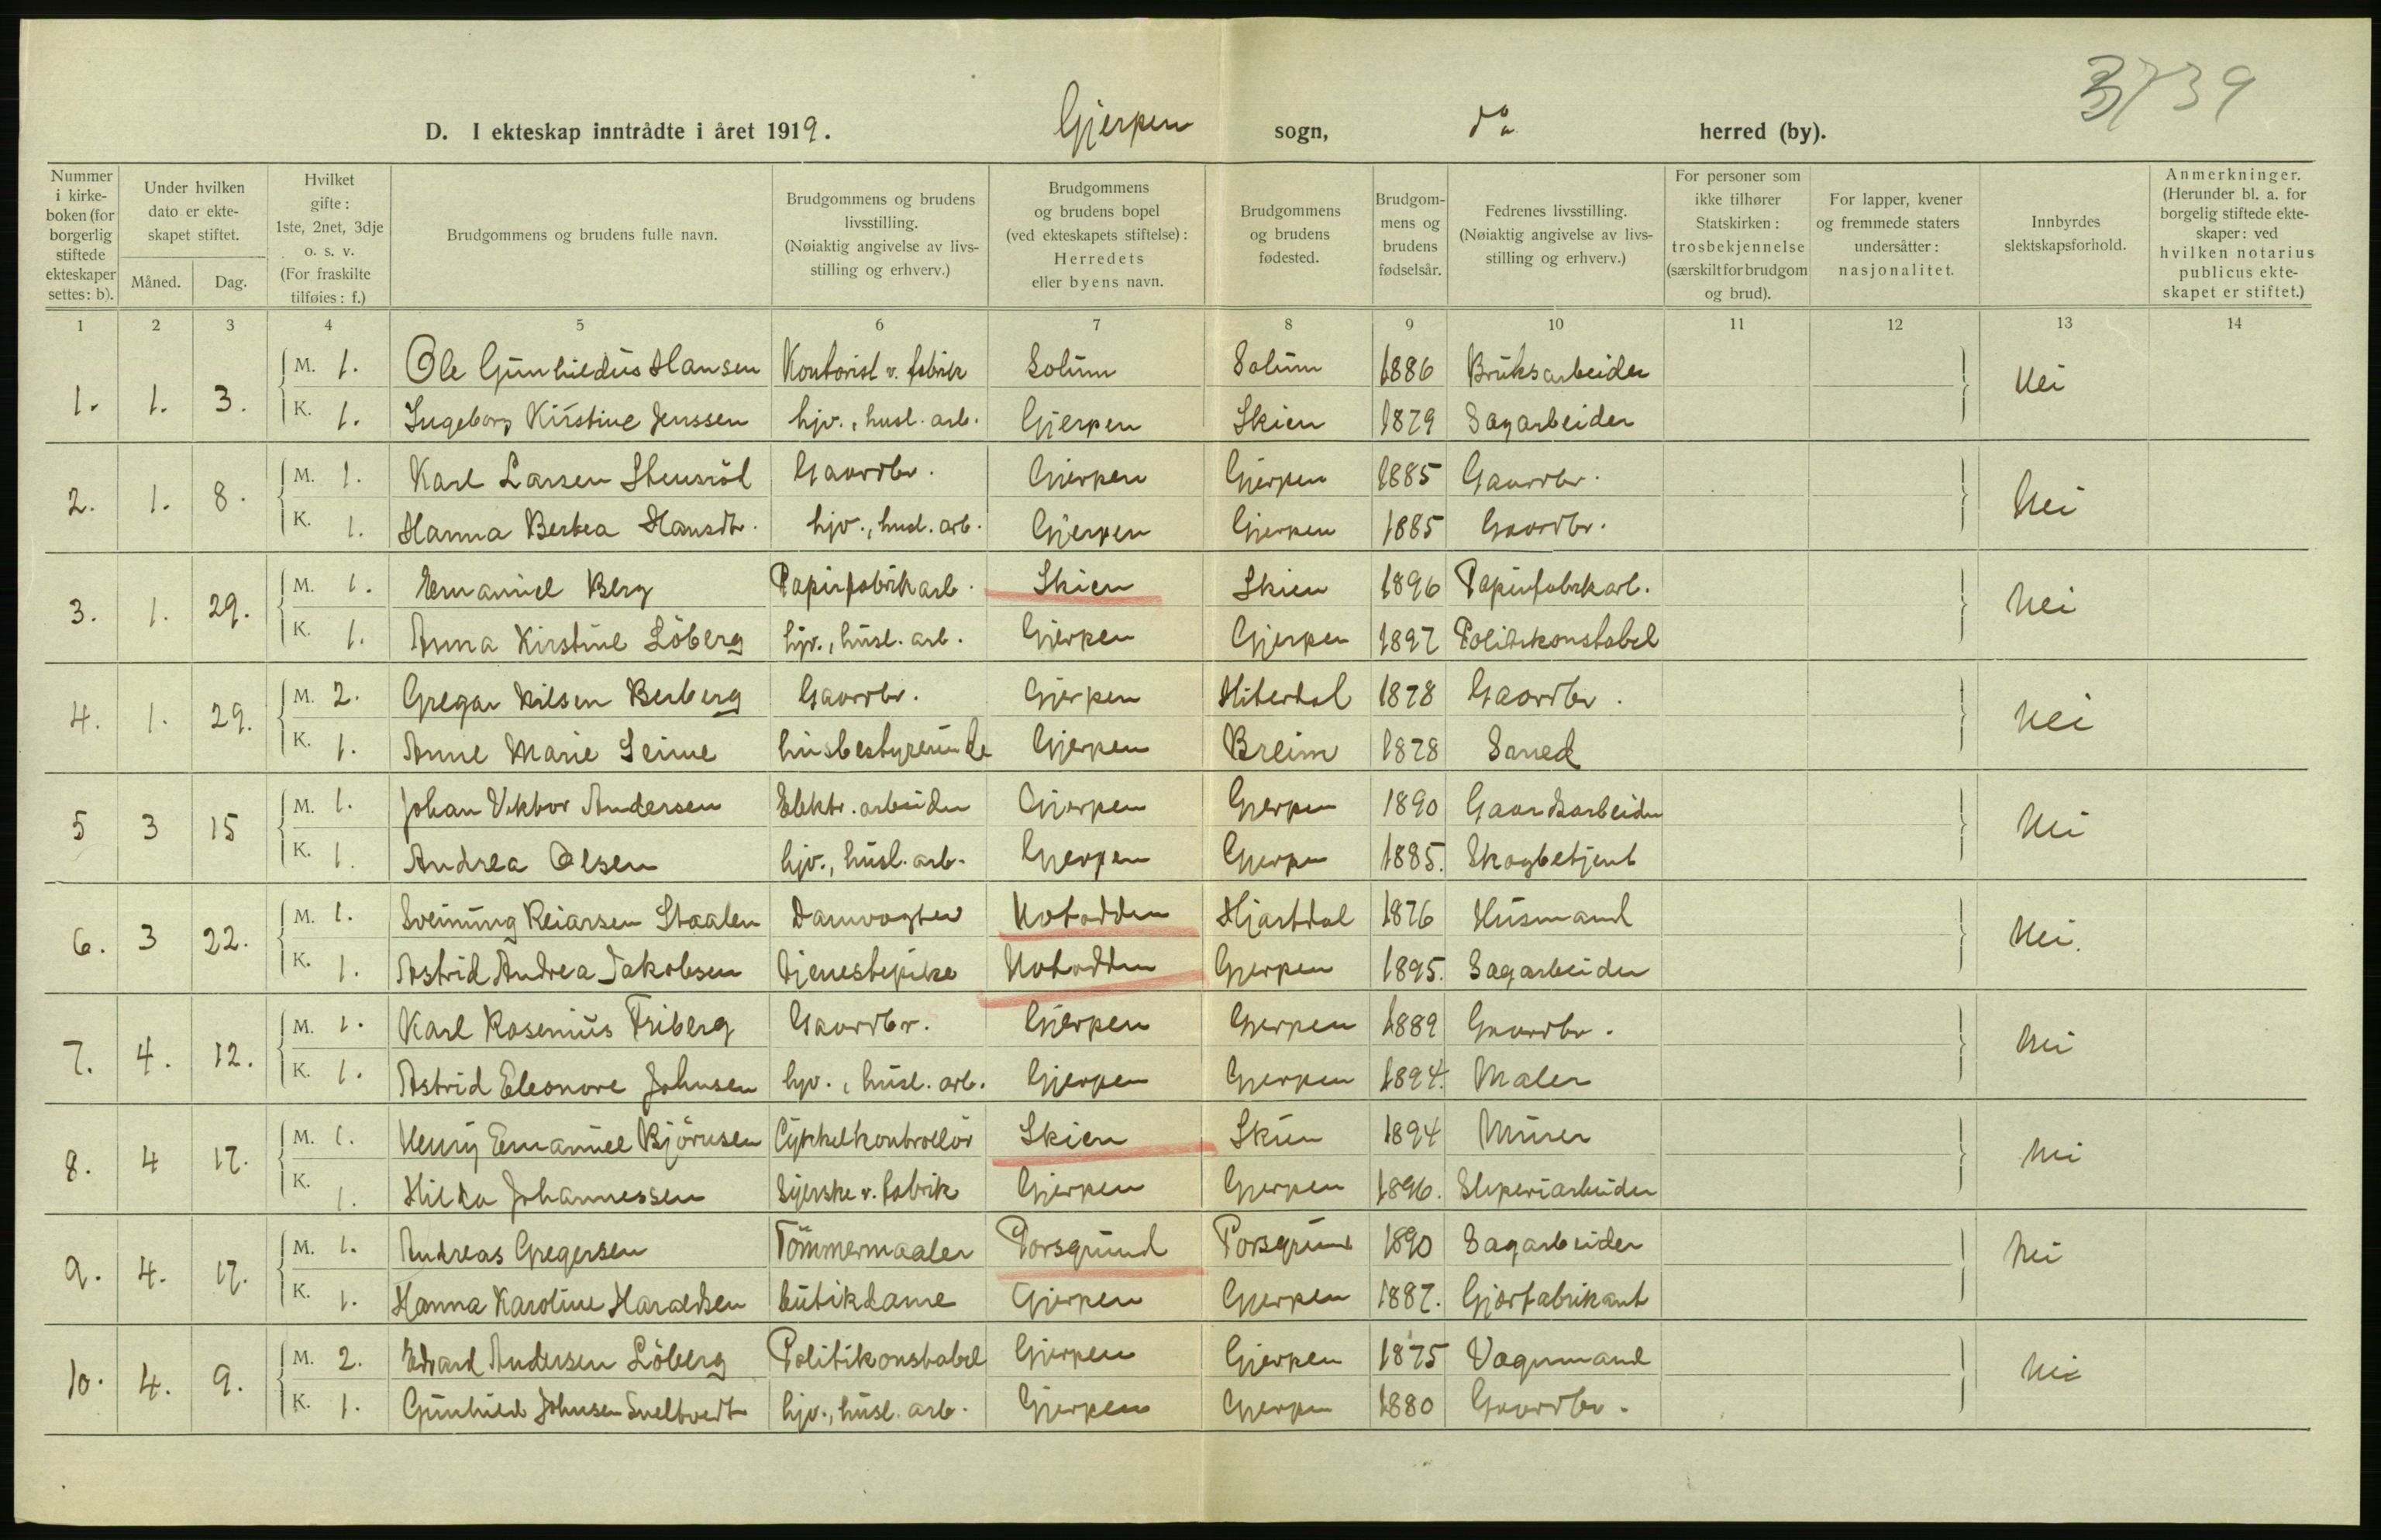 D. I ekteskap inntrådte i året 1919. Gjerpen sogn, do herred (by).
Nummer i kirkeboken (for borgerlig stiftede ekteskaper settes: b).
Under hvilken dato er ekteskapet stiftet.
Måned. Dag.
Hvilket gifte: 1ste, 2net, 3dje o. s. v. (For fraskilte tilføies: f.)
Brudgommens og brudens fulle navn.
Brudgommens og brudens livsstilling. (Nøiaktig angivelse av livsstilling og erhverv.)
Brudgommens og brudens bopel (ved ekteskapets stiftelse): Herredets eller byens navn.
Brudgommens og brudens fødested.
Brudgommens og brudens fødselsår.
Fedrenes livsstilling. (Nøiaktig angivelse av livsstilling og erhverv.)
For personer som ikke tilhører Statskirken: trosbekjennelse (særskilt for brudgom og brud).
For lapper, kvener og fremmede staters undersåtter: nasjonalitet.
Innbyrdes slektskapsforhold.
Anmerkninger. (Herunder bl. a. for borgelig stiftede ekteskaper: ved hvilken notarius publicus ekteskapet er stiftet.)
1 2 3 4 5 6 7 8 9 10 11 12 13 14
1. 1. 3. M. 1. Ole Gunhildus Hansen Kontorist v. fabrik Solum Solum 1886 Bruksarbeider Nei
K. 1. Ingeborg Kirstine Jenssen hjv., husl. arb. Gjerpen Skien 1879 Sagarbeider
2. 1. 8. M. 1. Karl Larsen Stensröd Gaardbr. Gjerpen Gjerpen 1885 Gaardbr. Nei
K. 1. Hanna Bertea Hansdtr. hjv., husl. arb. Gjerpen Gjerpen 1885 Gaardbr.
3. 1. 29. M. 1. Emanuel Berg Papirfabrikarb. Skien Skien 1896 Papirfabrkarb. Nei
K. 1. Anna Kirstine Löberg hjv., husl. arb. Gjerpen Gjerpen 1897 Politikonstabel
4. 1. 29. M. 2. Gregar Nilsen Berberg Gaardbr. Gjerpen Hiterdal 1878 Gaardbr. Nei
K. 1. Anne Marie Seime husbestyrerinde Gjerpen Breim 1878 Smed
5 3 15 M. 1. Johan Viktor Andersen Elektr. arbeider Gjerpen Gjerpen 1890 Gaardsarbeider Nei
K. 1. Andrea Olsen hjv., husl. arb. Gjerpen Gjerpen 1885. Skogbetjent
6. 3 22. M. 1. Sveinung Reiarsen Staalen Damvogter Notodden Hjartdal 1876 Husmand Nei.
K. 1. Astrid Andrea Jakobsen tjenestepike Notodden Gjerpen 1895. Sagarbeider
7. 4. 12. M. 1. Karl Rosenius Friberg Gaardbr. Gjerpen Gjerpen 1889 Gaardbr. Nei
K. 1. Astrid Eleonore Johnsen hjv., husl. arb. Gjerpen Gjerpen 1894. Maler
8. 4 17. M. 1. Henry Emanuel Björnsen Cykkelkontrollör Skien Skien 1894 Murer Nei
K. 1. Hilda Johannessen Syerske v. fabrik Gjerpen Gjerpen 1896. Sliperiarbeider
9. 4. 17. M. 1. Andreas Gregersen Tömmermaaler Porsgrund Porsgrund 1890 Sagarbeider Nei
K. 1. Hanna Karoline Haraldsen butikdame Gjerpen Gjerpen 1887. Gjærfabrikant
10. 4. 9. M. 2. Edvard Andersen Löberg Politikonstabel Gjerpen Gjerpen 1875 Vognmand Nei
K. 1. Gunhild Johnsen Sneltvedt hjv., husl. arb. Gjerpen Gjerpen 1880 Gaardbr.